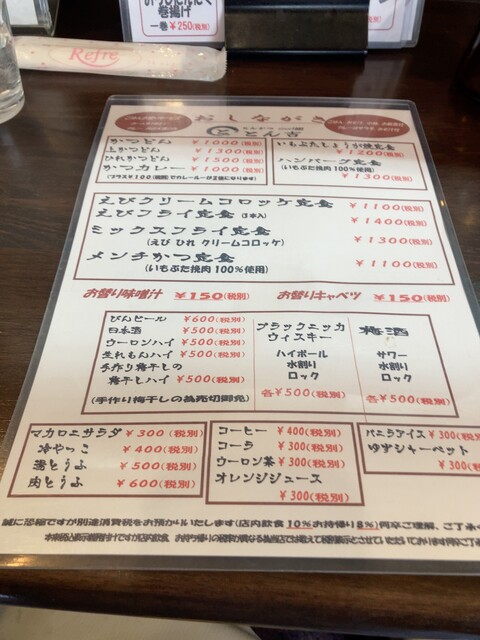 巻揚げ
一巻¥250(税別)
Refre
おしながき
とん吉
かつどん ¥1000(税別)
上かつどん ¥1300(税別)
ひれかつどん ¥1500(税別)
かつカレー ¥1000(税別)
いもぶたしょうが焼定食
¥1200(税別)
ハンバーグ定食
(いもぶた挽肉100%使用)
¥1300(税別)
えびクリームコロッケ定食 ¥1100(税別)
えびフライ定食(3本入) ¥1400(税別)
ミックスフライ定食 ¥1300(税別)
(えび ひれ クリームコロッケ)
メンチかつ定食 ¥1100(税別)
(いもぶた挽肉100%使用)
お替り味噌汁 ¥150(税別) お替りキャベツ ¥150(税別)
びんビール ¥600(税別)
日本酒 ¥500(税別)
ウーロンハイ ¥500(税別)
生れもんハイ ¥500(税別)
手作り梅干しの
梅干しハイ ¥500(税別)
(手作り梅干しの為売切御免)
ブラックニッカ
ウィスキー
ハイボール
水割り
ロック
各¥500(税別)
梅酒
サワー
水割り
ロック
各¥500(税別)
マカロニサラダ ¥300(税別)
冷やっこ ¥400(税別)
とうふ ¥500(税別)
肉とうふ ¥600(税別)
コーヒー ¥400(税別)
コーラ ¥300(税別)
ウーロン茶 ¥300(税別)
オレンジジュース
¥300(税別)
バニラアイス ¥300(税別)
ゆずシャーベット
¥300(税別)
誠に恐縮ですが別途消費税をお預かりいたします(店内飲食10%お持帰り8%)何卒ご理解、ご了承